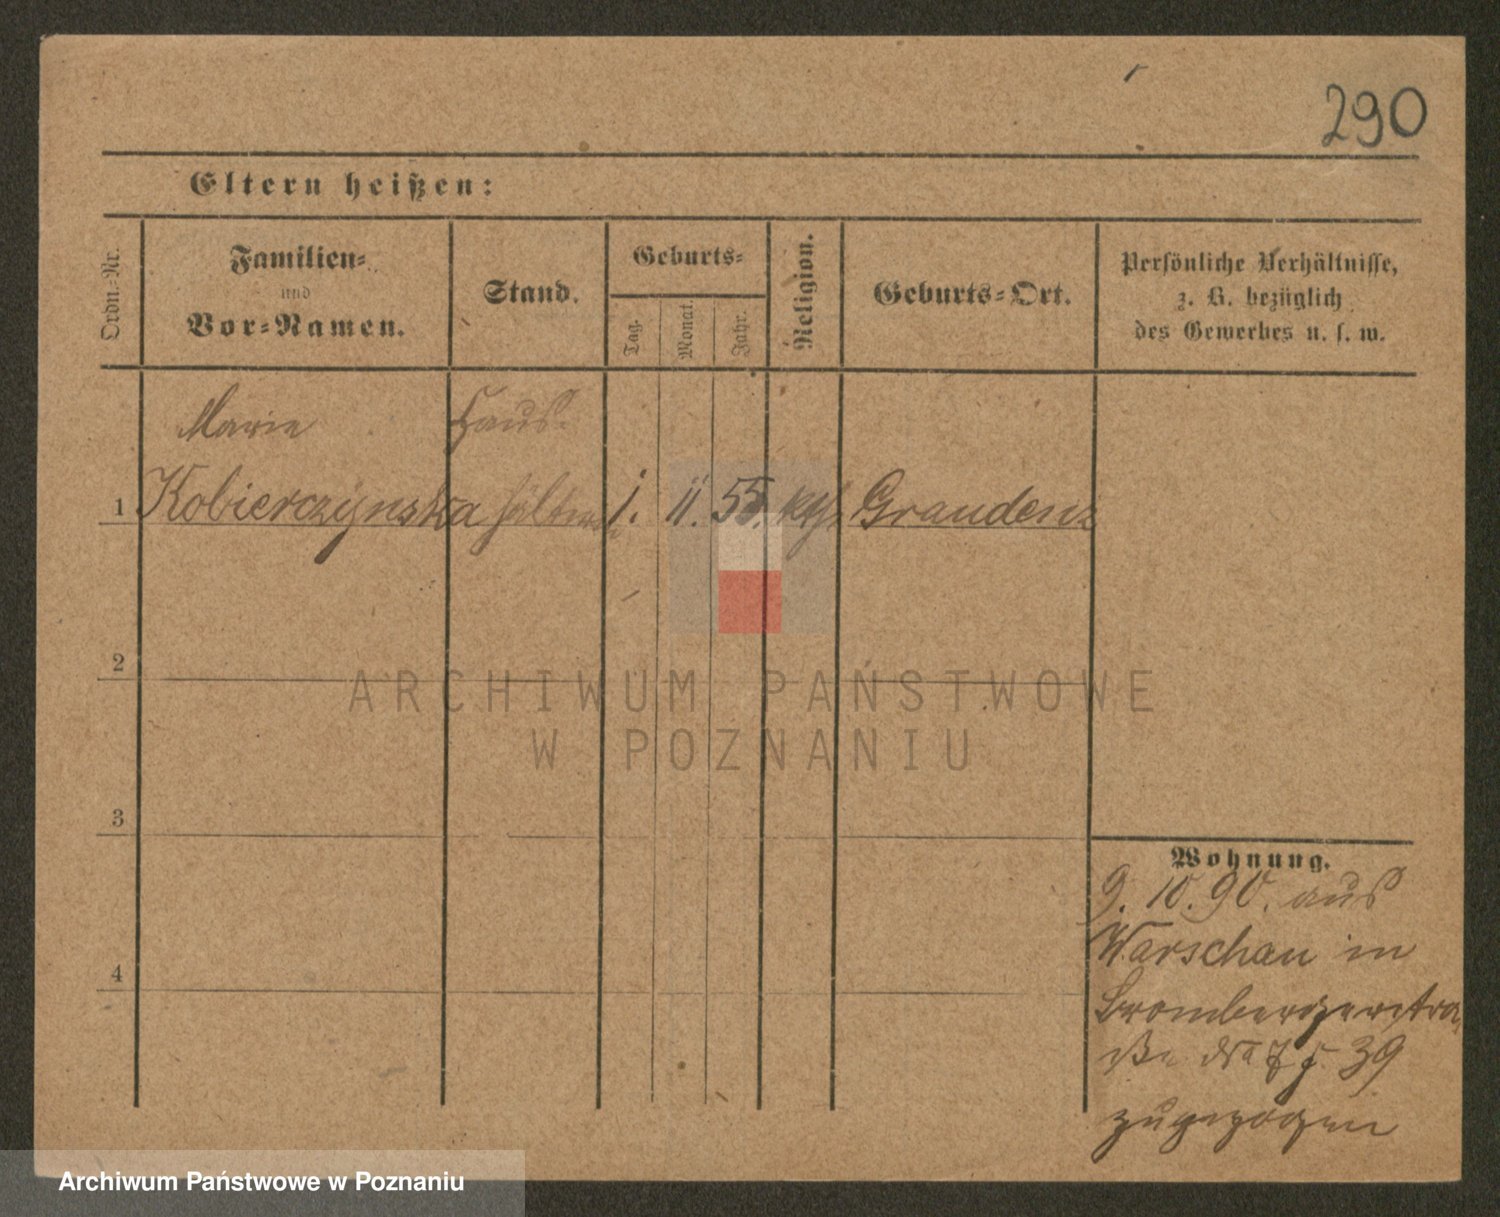 290
Eltern heißen:
Ordn.-Nr.
Familien-
und
Vor-Namen.
Stand.
Geburts-
Tag.
Monat.
Jahr.
Religion.
Geburts-Ort.
Persönliche Verhältnisse,
z. B. bezüglich
des Gewerbes u. s. w.
Marie Haus-
1 Kobierczynska hälterin 1. 11. 55. kth. Graudenz
2
3
4
Wohnung.
9. 10. 90. aus
Warschau in
Brombergerstra
ße 39
zugezogen
ARCHIWUM PAŃSTWOWE
W POZNANIU
Archiwum Państwowe w Poznaniu